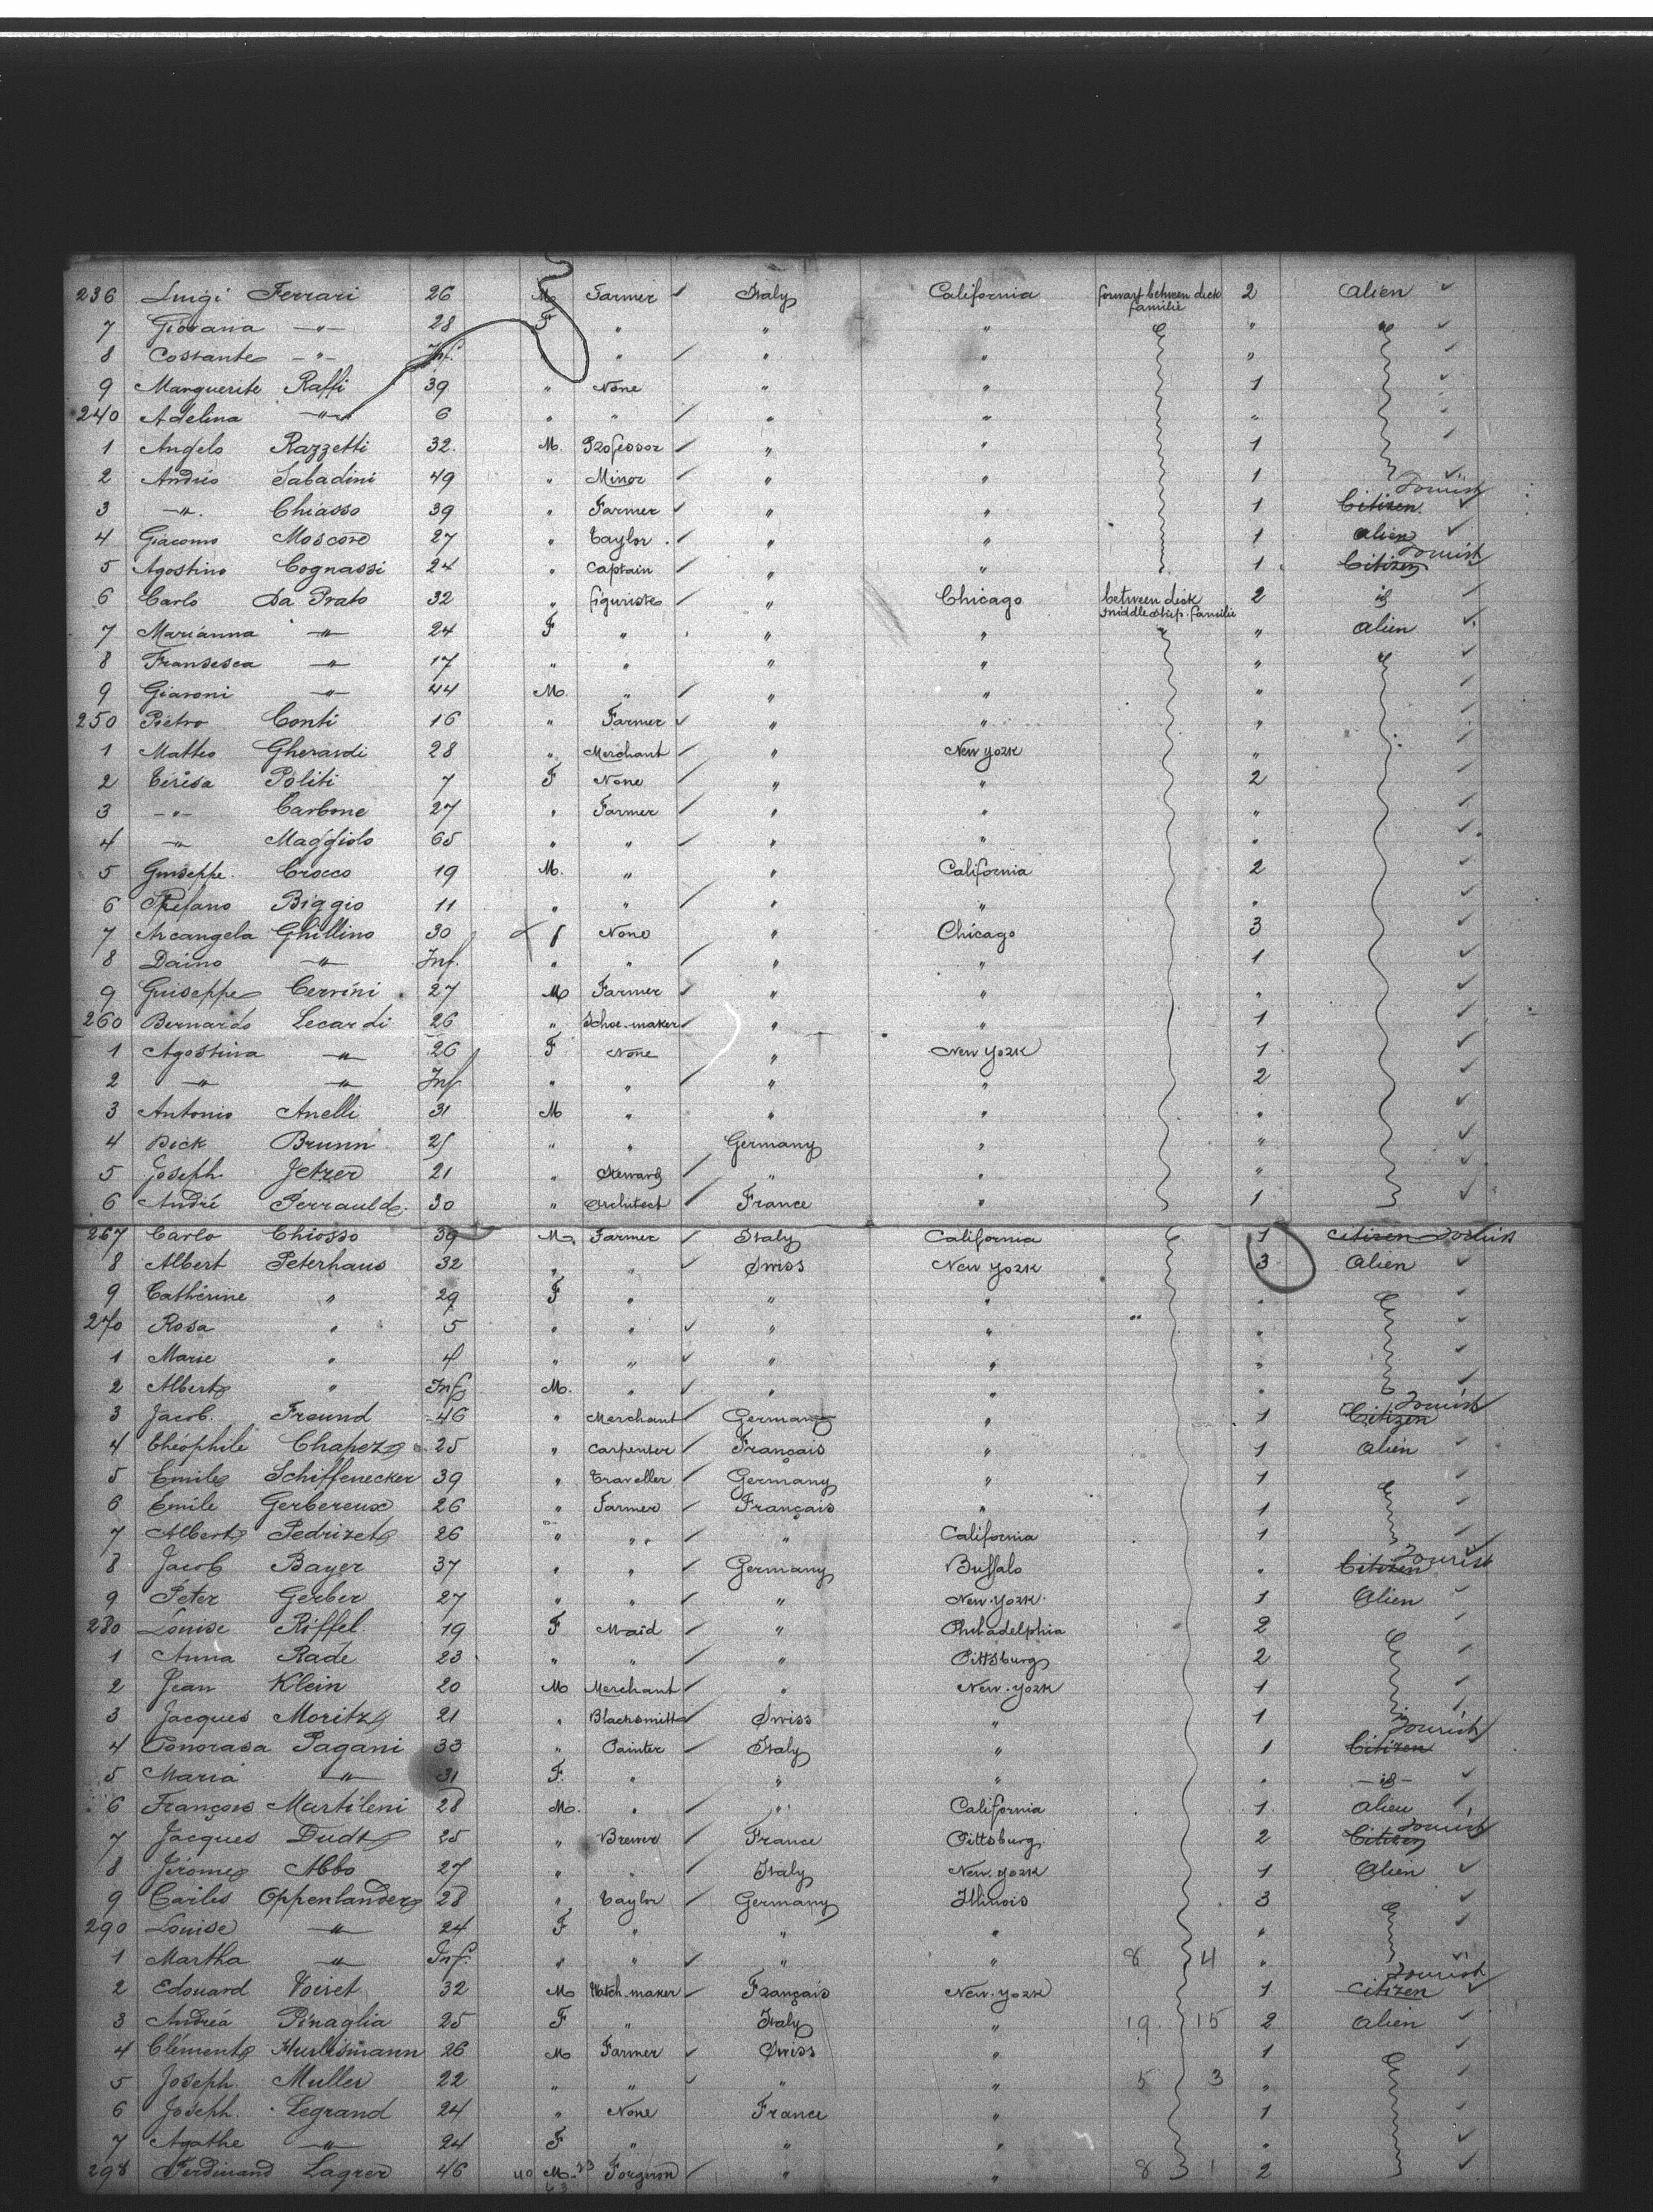 236 Luigi Ferrari 26 M. Farmer Italy California forwart between deck familie 2 Alien
7 Giovana -"- 28 F " " " "
8 Costante -"- Inf. " " " "
9 Marguerite Raffi 39 " None " " 1
240 Adelina -"- 6 " " " " "
1 Angelo Razzetti 32. M. Professor " " 1
2 Andréo Sabadini 49 " Minor " " 1
3 -"- Chiasso 39 " Farmer " " 1 Citizen Tourist
4 Giacomo Moscove 27 " Taylor " " 1 Alien
5 Agostino Cognassi 24 " Captain " " 1 Citizen Tourist
6 Carlo Da Prato 32 " figuriste " Chicago between deck middle ship. familie 2 id
7 Marianna -"- 24 F " " " " " Alien
8 Fransesca -"- 17 " " " " "
9 Giavoni -"- 44 M. " " " "
250 Pietro Conti 16 " Farmer " " "
1 Matteo Gherardi 28 " Merchant " New York "
2 Térésa Politi 7 F None " " 2
3 -"- Carbone 27 " Farmer " " "
4 -"- Maggiolo 65 " " " " "
5 Guiseppe Crocco 19 M. " " California 2
6 Stefano Biggio 11 " " " " "
7 Arcangela Ghillino 30 f None " Chicago 3
8 Daino -"- Inf. " " " " 1
9 Guiseppe Cerrini 27 M Farmer " " "
260 Bernardo Lecardi 26 " Schoe-maker " " 1
1 Agostina -"- 26 F None " New York 1
2 -"- -"- Inf " " " " 2
3 Antonio Anelli 31 M " " " "
4 Beck Brunn 25 " " Germany " "
5 Joseph Jetzer 21 " Steward " " "
6 André Perrauld 30 " Architect France " 1
267 Carlo Chiosso 39 M. Farmer Italy California 1 Citizen Tourist
8 Albert Peterhaus 32 " " Swiss New York 3 Alien
9 Cathérine " 29 F " " " "
270 Rosa " 5 " " " " "
1 Marie " 4 " " " " "
2 Albert " Inf M. " " " "
3 Jacob. Freund 46 " Merchant Germany " 1 Citizen Tourist
4 Théophile Chapez 25 " Carpenter Français " 1 Alien
5 Emile Schiffenecker 39 " Traveller Germany " 1
6 Emile Gerbereux 26 " Farmer Français " 1
7 Albert Pedrizet 26 " " " California 1
8 Jacob Bayer 37 " " Germany Buffalo " Citizen Tourist
9 Peter Gerber 27 " " " New-York 1 Alien
280 Louise Riffel 19 F Maid " Philadelphia 2
1 Anna Rade 23 " " " Pittsburg 2
2 Jean Klein 20 M Merchant " New-York 1
3 Jacques Moritz 21 " Blacksmith Swiss " 1
4 Pagani 33 " Painter Italy " 1 Citizen Tourist
5 Maria -"- 31 F. " " " " -id-
6 François Martileni 28 M. " " California 1. Alien
7 Jacques Dudt 25 " Brewer France Pittsburg 2 Citizen Tourist
8 Jérome Abbo 27 " " Italy New York 1 Alien
9 Carlis Oppenlander 28 " Taylor Germany Illinois 3
290 Louise -"- 24 F " " " "
1 Martha -"- Inf. " " " " 8 4 "
2 Edouard Voiret 32 M Watch-maker Français New-York 1 Citizen Tourist
3 Andréa Pinaglia 25 F " Italy " 19 15 2 Alien
4 Clément Hurlismann 26 M Farmer Swiss " 1
5 Joseph. Muller 22 " " " " 5 3 "
6 Joseph. Legrand 24 " None France " 1
7 Agathe -"- 24 F " " " "
298 Ferdinand Lagrer 46 40 M. 23 Forgeron " " 8 1 2
63